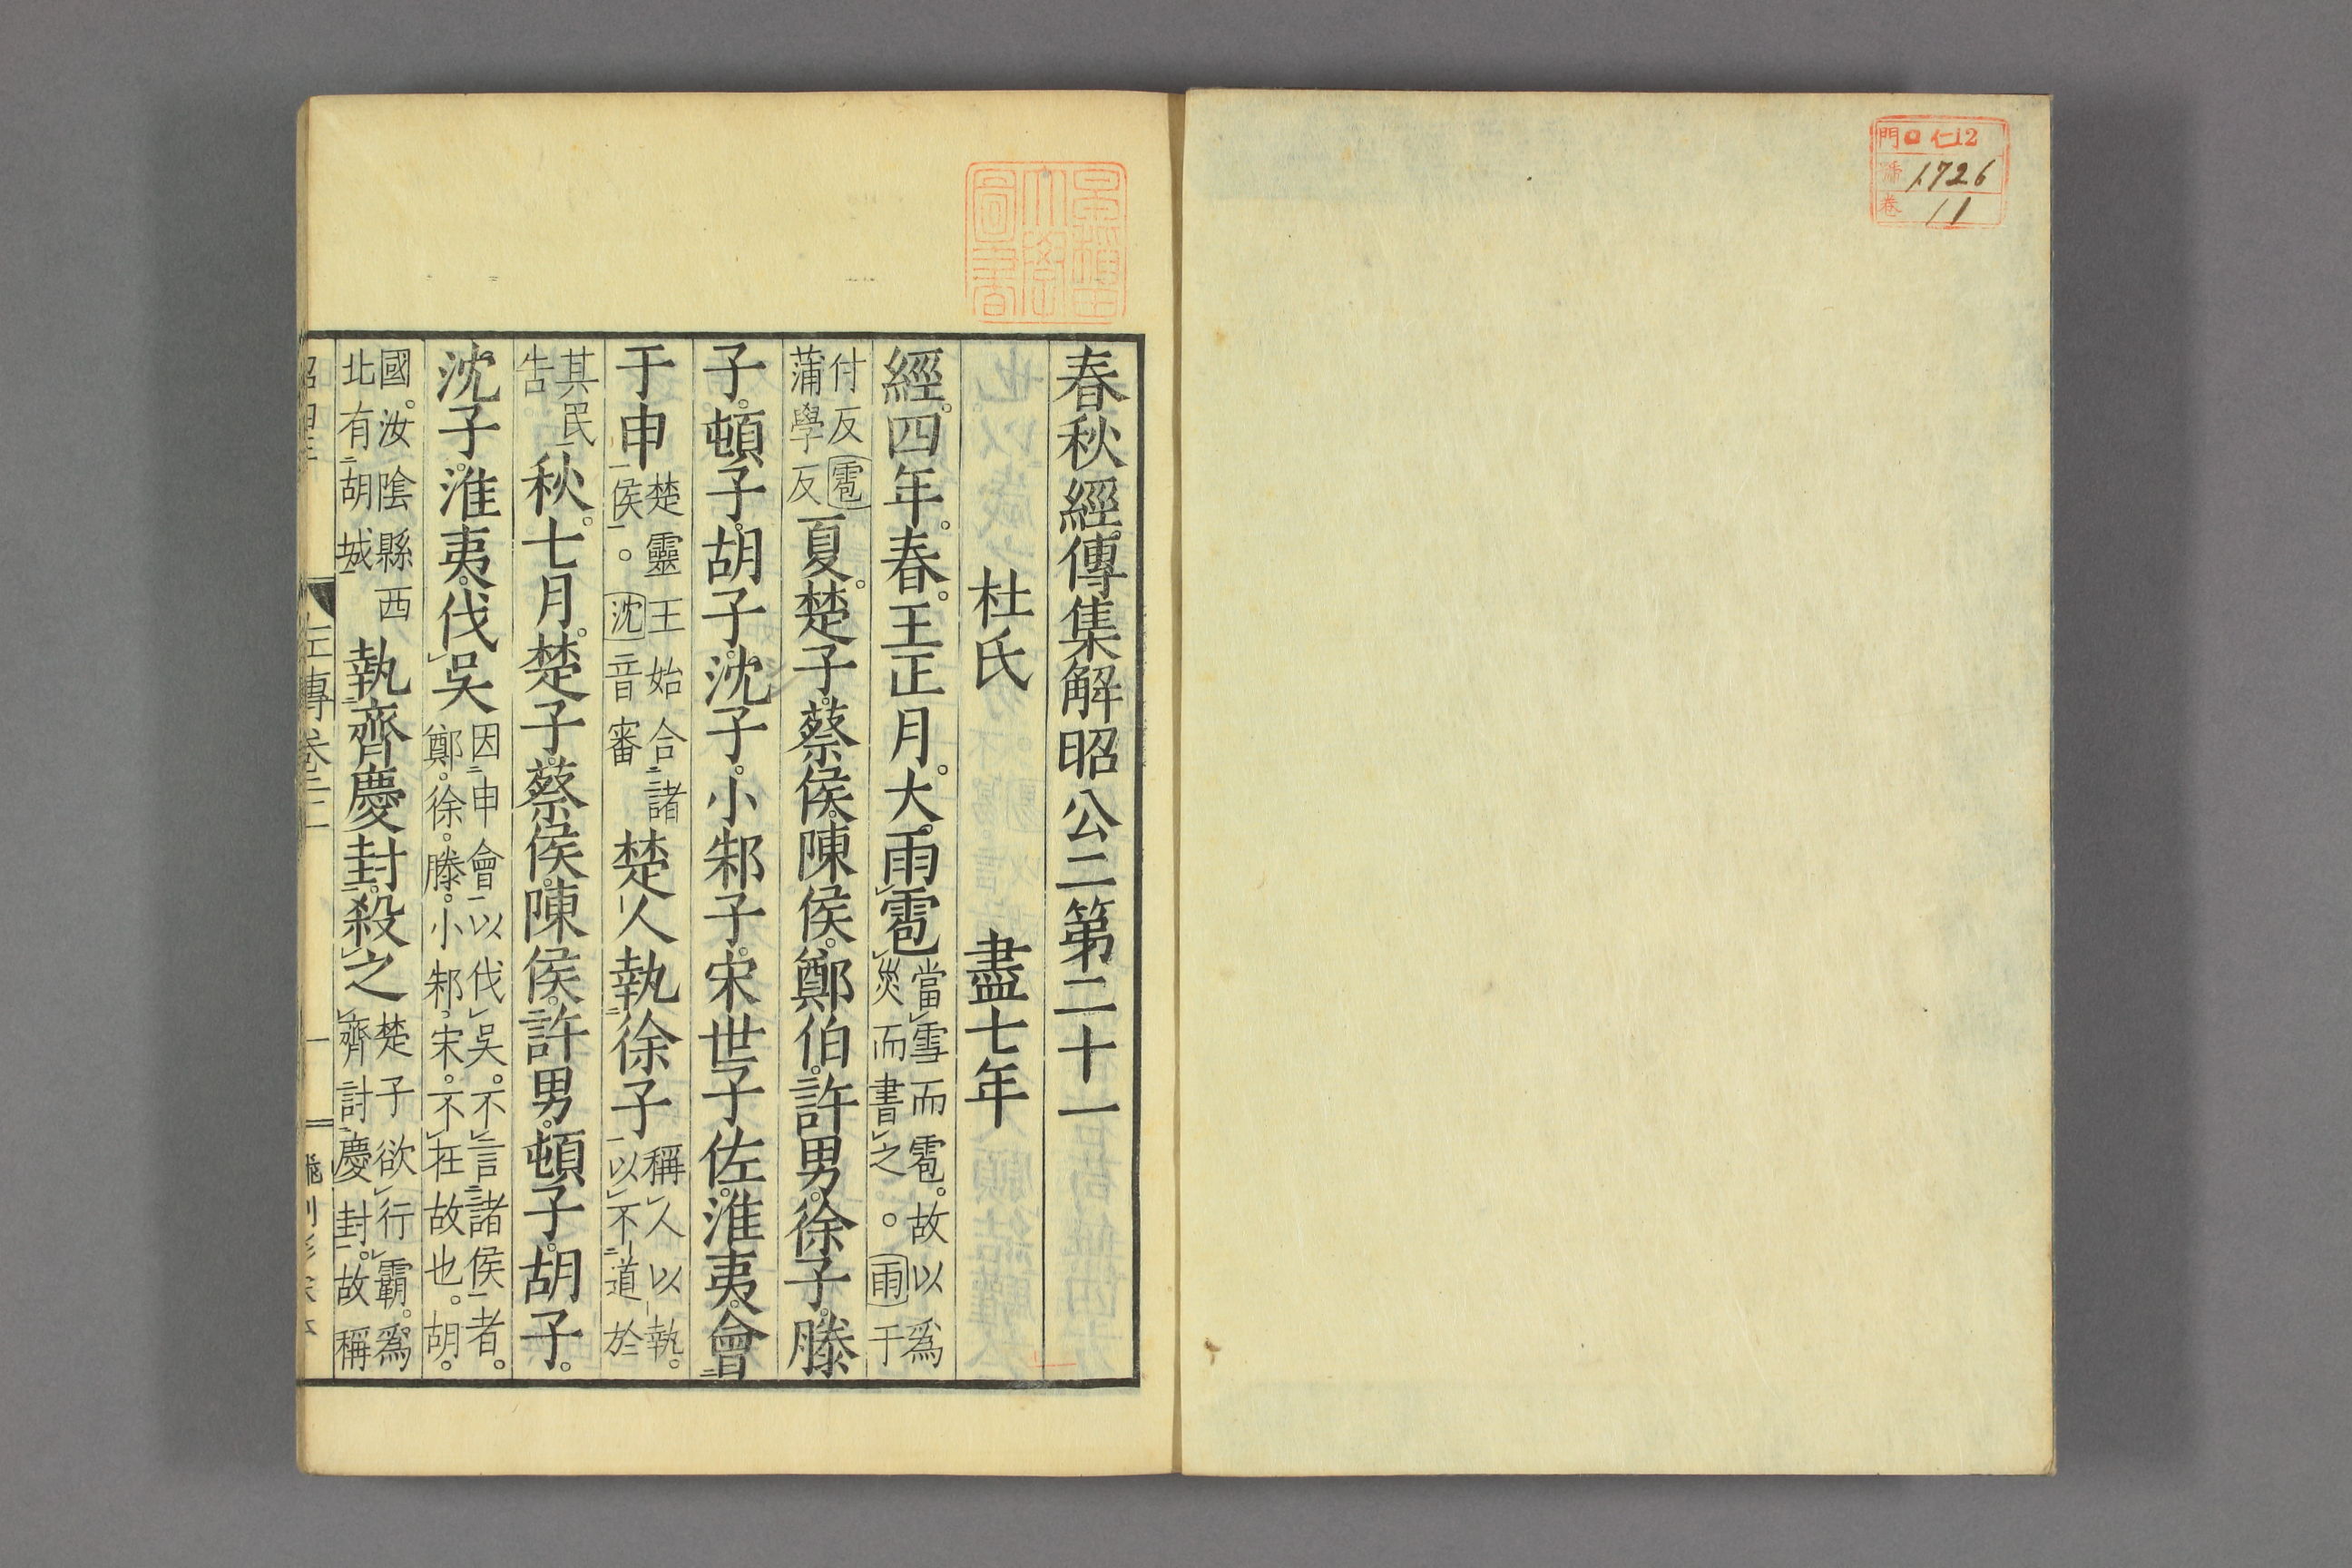 門 ロ 仁12
號 1726
卷 11
春秋經傳集解昭公二第二十一
杜氏 盡七年
經。四年。春。王正月。大雨雹當雪而雹。故以爲災而書之。。雨于
付反雹蒲學反夏。楚子。蔡侯。陳侯。鄭伯。許男。徐子。滕
子。頓子。胡子。沈子。小邾子。宋世子佐。淮夷。會
于申楚靈王始合諸侯。沈音審楚人執徐子稱人以執。以不道於
其民告。秋。七月。楚子。蔡侯。陳侯。許男。頓子。胡子。
沈子。淮夷。伐吳因申會以伐吳。不言諸侯者。鄭。徐。滕。小邾。宋。不在故也。胡。
國。汝陰縣西北有胡城執齊慶封。殺之楚子欲行霸。爲齊討慶封。故稱
左傳卷二 一